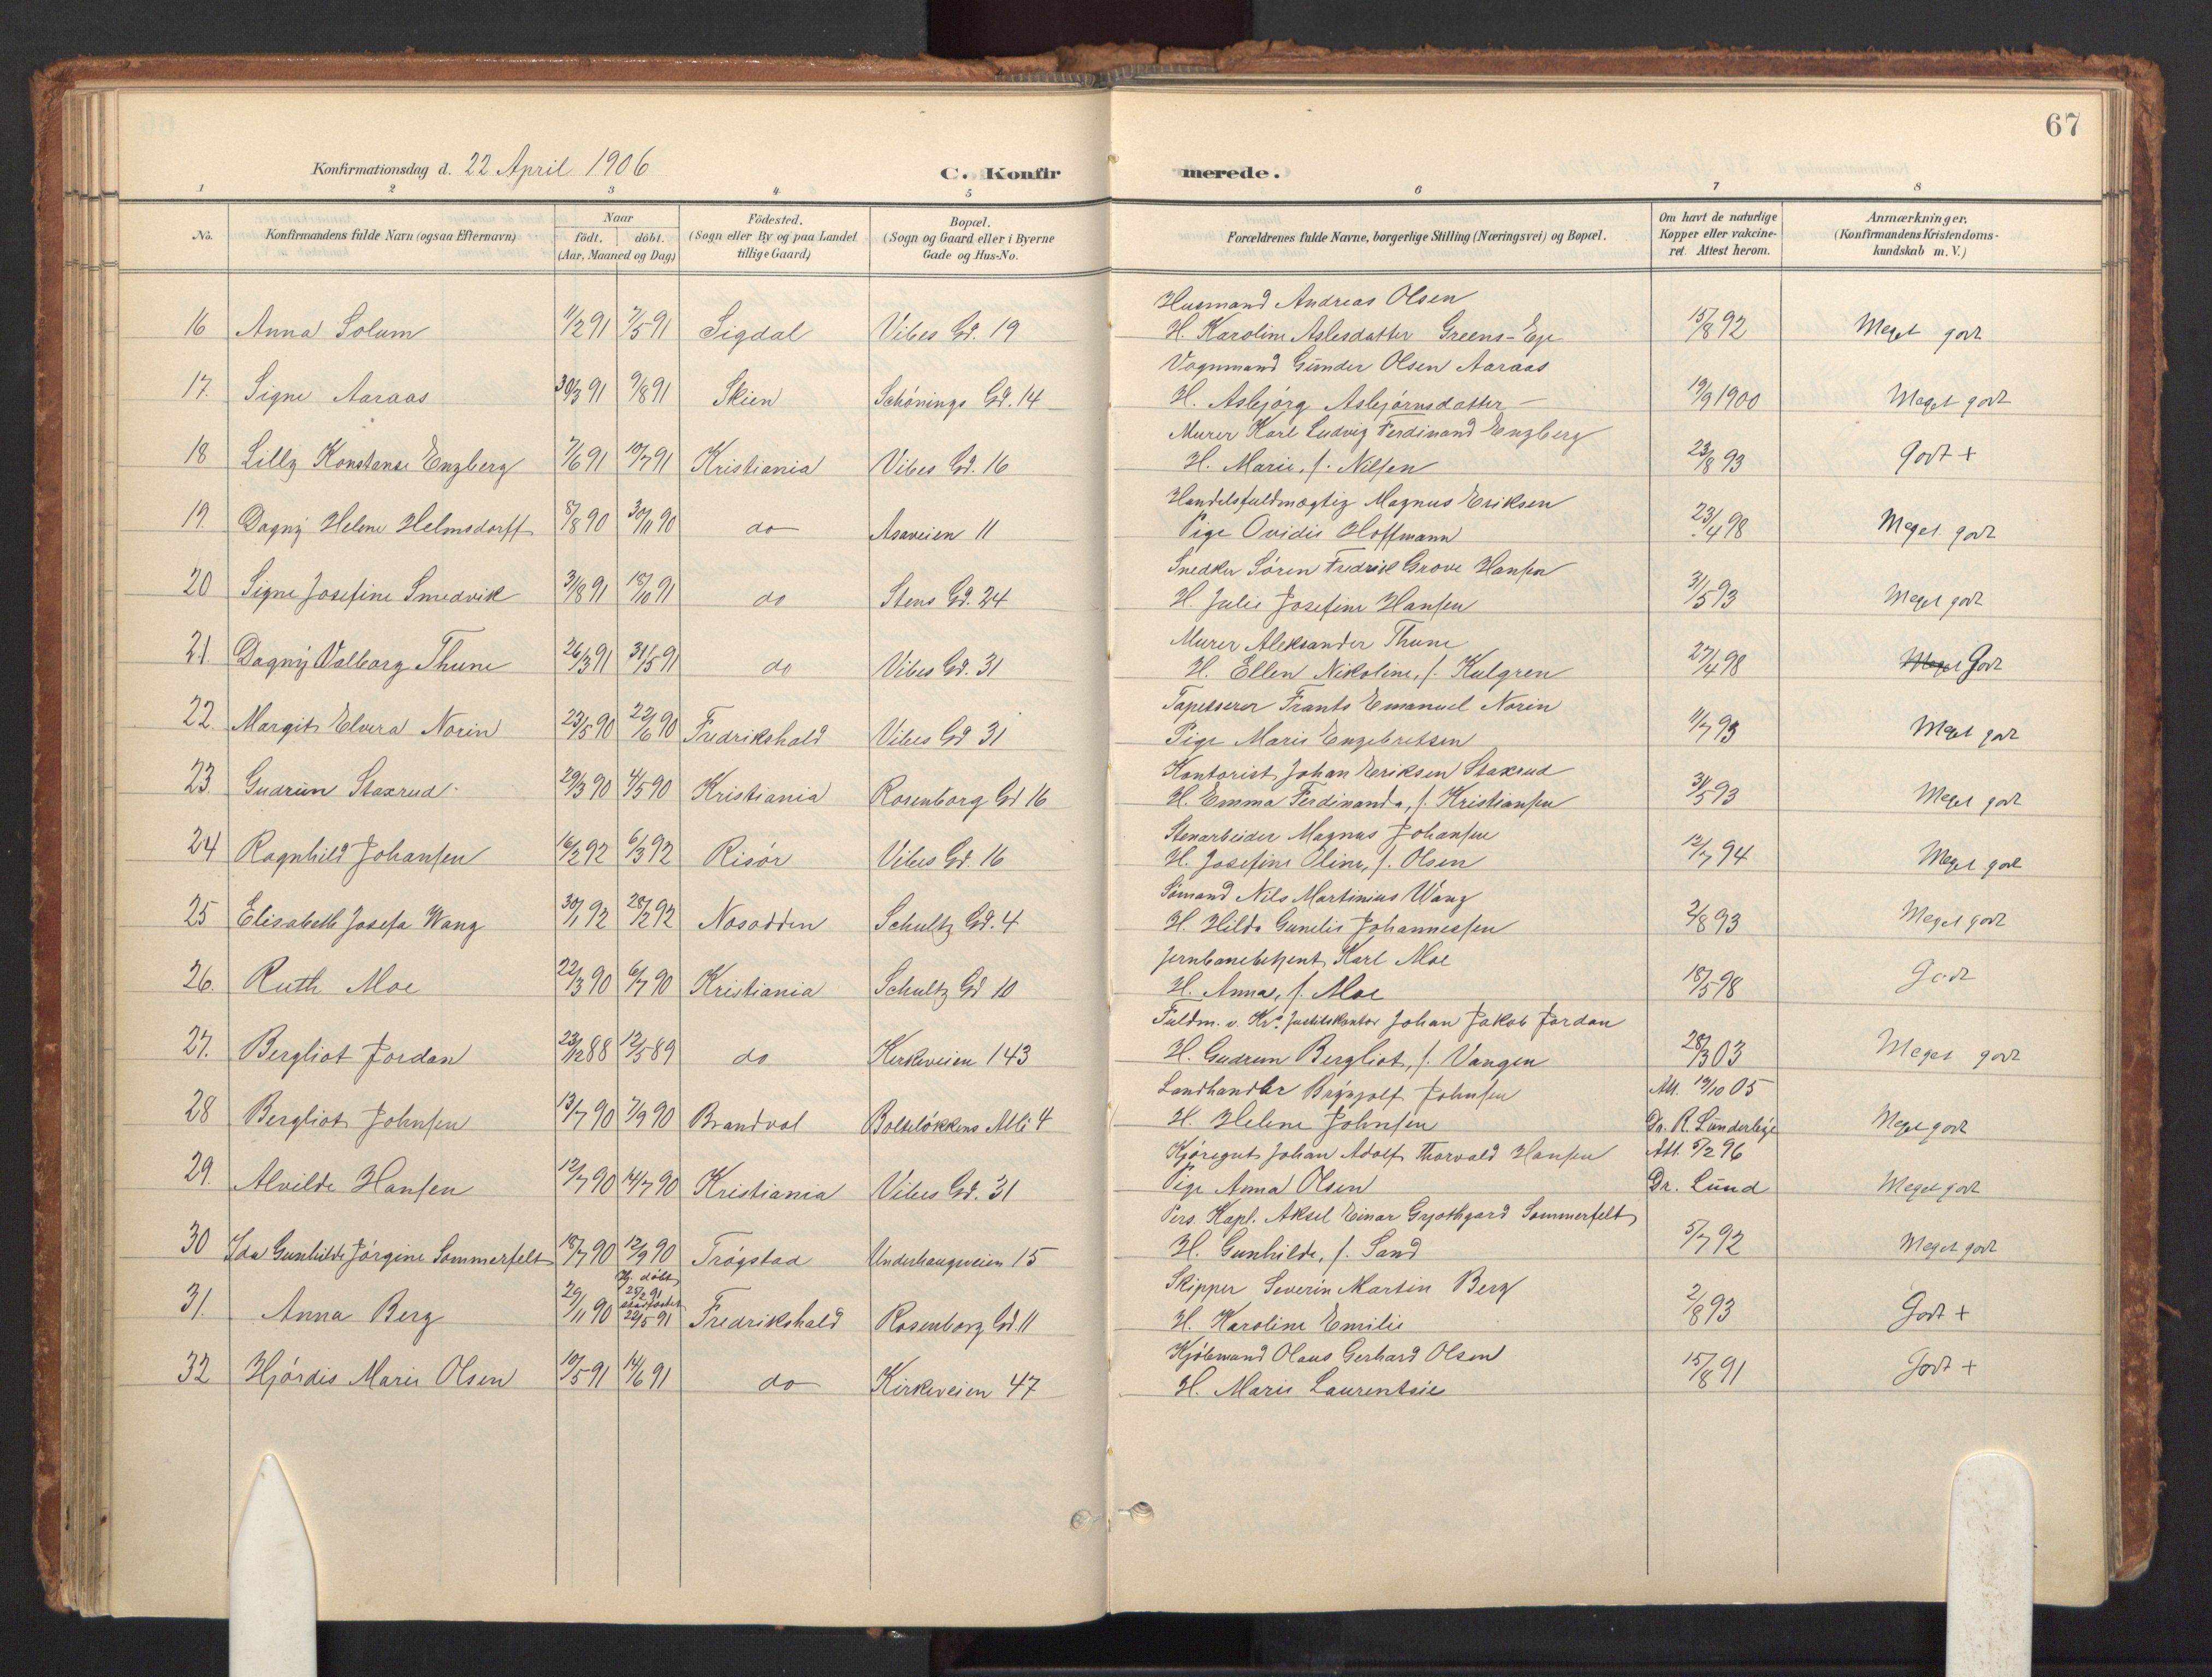 67
Konfirmationsdag d. 22 April 1906 C. Konfirmerede.
1 2 3 4 5 6 7 8
No. Konfirmandens fulde Navn (ogsaa Efternavn) Naar født. døbt. (Aar, Maaned og Dag) Fødested. (Sogn eller By og paa Landet tillige Gaard) Bopæl. (Sogn og Gaard eller i Byerne Gade og Hus-No. Forældrenes fulde Navne, borgerlige Stilling (Næringsvei) og Bopæl. Om havt de naturlige Kopper eller vakcineret. Attest herom. Anmærkninger. (Konfirmandens Kristendomskundskab m. V.)
Husmand Andreas Olsen
16 Anna Solum 11/2 91 7/5 91 Sigdal Vibes Gd. 19 H. Karoline Aslesdatter Greens-Eje 15/8 92 Meget godt
Vognmand Gunder Olsen Aaraas
17. Signe Aaraas 30/3 91 9/8 91 Skien Schönings Gd. 14 H. Asbjörg Asbjörnsdatter 19/9 1900 Meget godt
Murer Karl Ludvig Ferdinand Engberg
18 Lilly Konstanse Engberg 7/6 91 19/7 91 Kristiania Vibes Gd. 16 H. Marie, f. Nilsen 23/8 93 Godt +
Handelsfuldmægtig Magnus Eriksen
19. Dagny Helene Helmsdorff 8/8 90 30/11 90 do Asaveien 11 Pige Ovidie Hoffmann 23/4 98 Meget godt
Snedker Sören Fredrik Grove Hansen
20 Signe Josefine Smedvik 31/8 91 18/10 91 do Stens Gd. 24 H. Julie Josefine Hansen 31/5 93 Meget godt
Murer Aleksander Thune
21. Dagny Valborg Thune 26/3 91 31/5 91 do Vibes Gd. 31 H. Ellen Nikoline, f. Kulgren 27/4 98 Meget Godt
Tapetserer Frants Emanuel Norin
22. Margit Elvera Norin 23/5 90 22/6 90 Fredrikshald Vibes Gd 31 Pige Marie Engebretsen 11/7 93 Meget godt
Kontorist Johan Eriksen Staxrud
23. Gudrun Staxrud 29/3 90 4/5 90 Kristiania Rosenborg Gd 16 H. Emma Ferdinanda, f. Kristiansen 31/5 93 Meget godt
Stenarbeider Magnus Johansen
24 Ragnhild Johansen 16/2 92 6/3 92 Risör Vibes Gd. 16 H. Josefine Oline, f. Olsen 12/7 94 Meget godt
Sömand Nils Martinius Wang
25 Elisabeth Josefa Wang 30/1 92 28/2 92 Nesodden Schultz Gd. 4 H. Hilda Gunelie Johannessen 2/8 93 Meget godt
Jernbanebetjent Karl Moe
26. Ruth Moe 22/3 90 6/7 90 Kristiania Schultz Gd 10 H. Anna, f. Moe 18/5 98 Godt
Fuldm. v. Kra Justitskontor Johan Jakob Jordan
27. Bergliot Jordan 23/12 88 12/5 89 do Kirkeveien 143 H. Gudrun Bergliot, f. Vangen 28/3 03 Meget godt
Landhandler Brynjolf Johnsen Att. 19/10 05
28 Bergliot Johnsen 13/7 90 7/9 90 Brandval Bolteløkkens Allé 4 H. Helene Johnsen Dr. R. Sunderbye Meget godt
Kjöregut Johan Adolf Thorvald Hansen Att. 5/2 96
29. Alvilde Hansen 12/7 90 14/7 90 Kristiania Vibes Gd. 31 Pige Anna Olsen Dr. Lund Meget godt
Pers. Kapl. Aksel Einar Gjothgard Sommerfelt
30 Ida Gunhilde Jörgine Sommerfelt 18/7 90 12/9 90 Trögstad Underhaugsveien 15 H. Gunhilde, f. Sand 5/7 92 Meget godt
Hj. döbt 25/2 91 stadfæstet Skipper Severin Martin Berg
31. Anna Berg 29/11 90 22/5 91 Fredrikshald Rosenborg Gd. 11 H. Karoline Emilie 2/8 93 Godt +
Kjöbmand Olaus Gerhard Olsen
32 Hjördis Marie Olsen 10/5 91 14/6 91 do Kirkeveien 47 H. Marie Laurentsie 15/8 91 Godt +